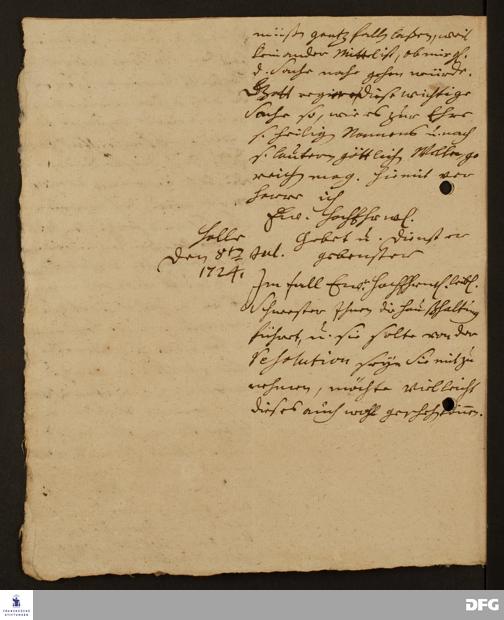 müste gantz fallen laßen, weil
kein ander Mittel ist, ob mirs gl.
d. Sache nahe gehen würde.
Gott regiere diese wichtige
Sache so, wie es zur Ehre
s. heiligen Namens u. nach
s. lautern göttlichen Willen ge
reichen mag. Hiemit ver
harre ich
Ew. HochEhrw.
Halle Gebet u. Dienst er
den 8ten Jul. gebenster
1724.
Im fall Ew. HochEhrw. liebl.
Schwester Ihnen die Haußhaltung
führet, u. sie solte von der
resolution seyn Sie mit zu
nehmen, möchte vielleicht
dieses auch wohl geschehen können.
FRANCKESCHE
STIFTUNGEN
DFG